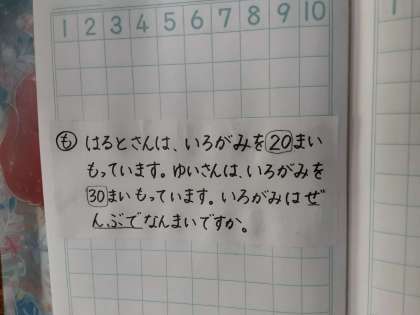 1 2 3 4 5 6 7 8 9 10
も はるとさんは、いろがみを20まい
もっています。ゆいさんは、いろがみを
30まいもっています。いろがみはぜ
んぶでなんまいですか。
1